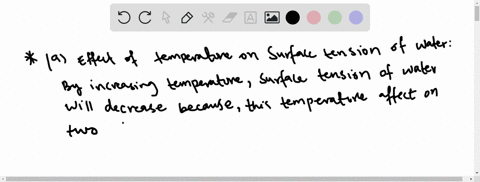 * (a) Effect of temperature on Surface tension of water:
By increasing temperature, surface tension of water
will decrease because, this temperature affect on
two